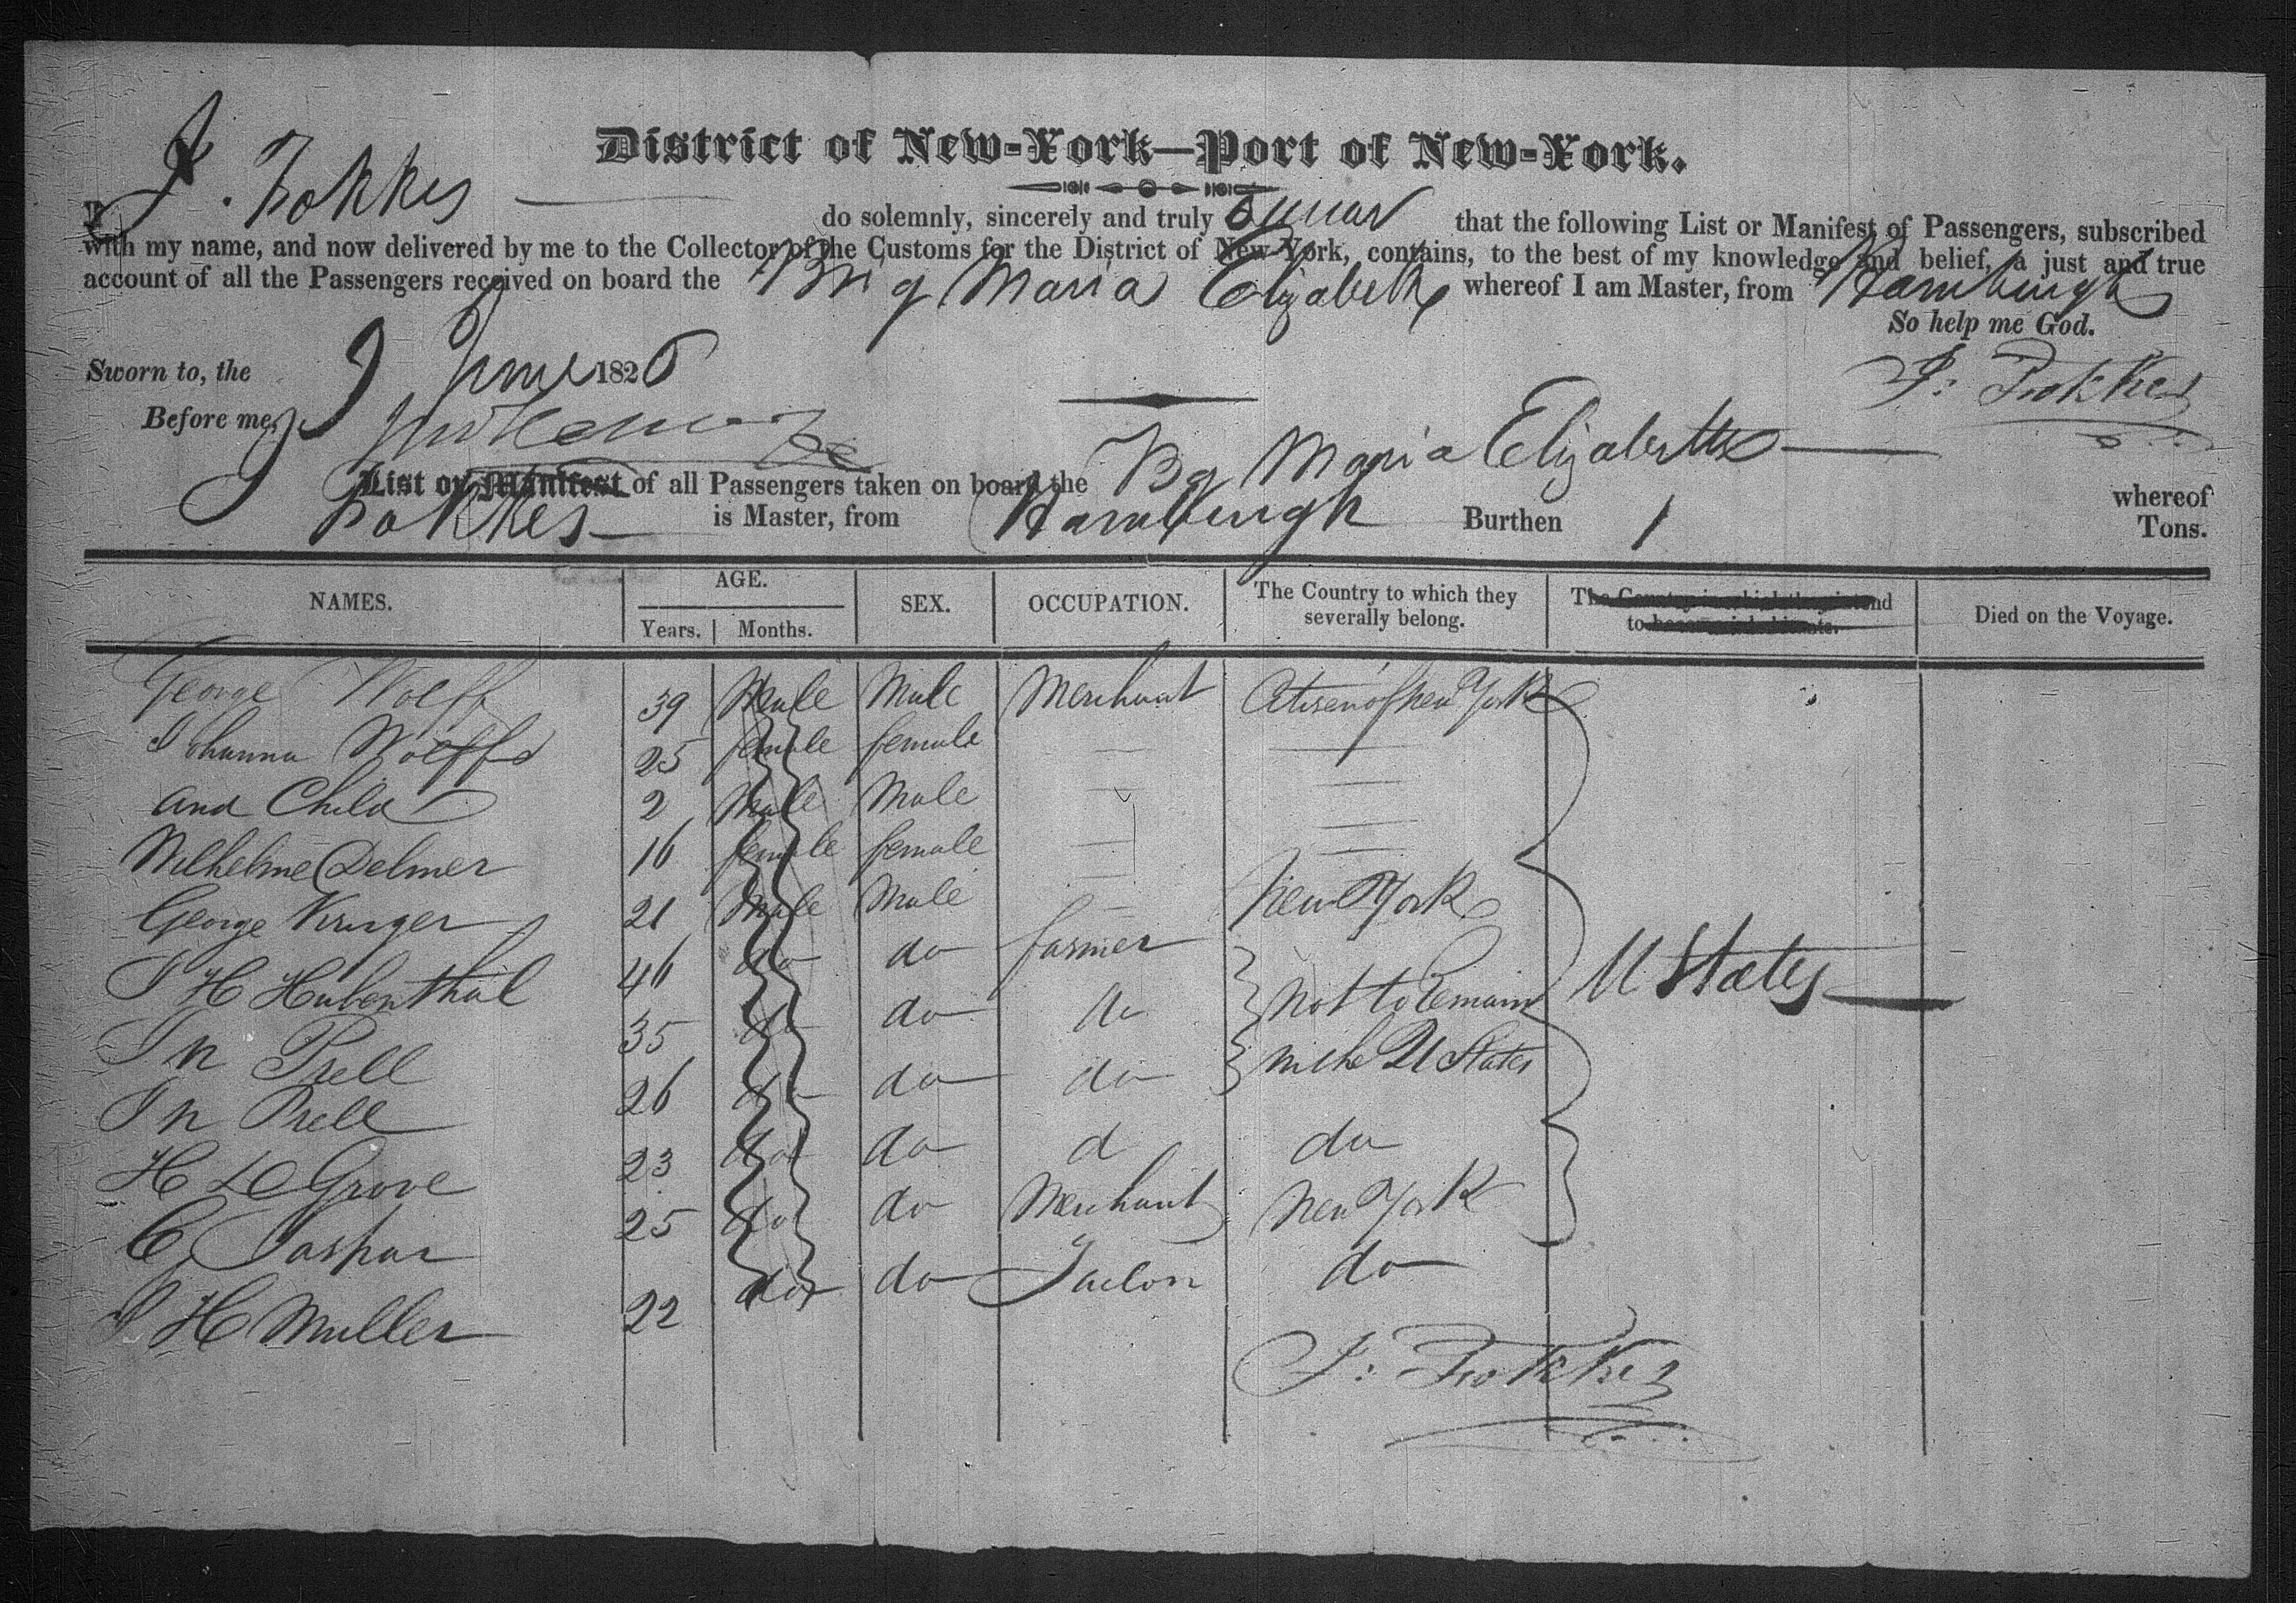 District of New-York—Port of New-York.
I J. Fokkes do solemnly, sincerely and truly swear that the following List or Manifest of Passengers, subscribed
with my name, and now delivered by me to the Collector of the Customs for the District of New-York, contains, to the best of my knowledge and belief, a just and true
account of all the Passengers received on board the Brig Maria Elizabeth whereof I am Master, from Hamburgh
So help me God.
Sworn to, the 9 June 1826
J: Fokkes
Before me,
List or Manifest of all Passengers taken on board the Bg Maria Elizabeth whereof
J Fokkes is Master, from Hamburgh Burthen Tons.
NAMES. AGE. SEX. OCCUPATION. The Country to which they severally belong. The Country in which they intend to become inhabitants. Died on the Voyage.
Years. Months.
George Wolff 39 Male Male Merchant Citisen of New York
Johanna Wolff 25 female female
and Child 2 Male Male
Wilhelmine Delmer 16 female female
George Kruger 21 Male Male New York
J H Hubenthal 46 do do farmer
J n Prell 35 do do do not to Remain
J n Prell 26 do do do in the U States
H D Grove 23 do do d do
C Jaspar 25 do do Merchant New York
J H Muller 22 do do Tailor do
U States
J: Fokkes